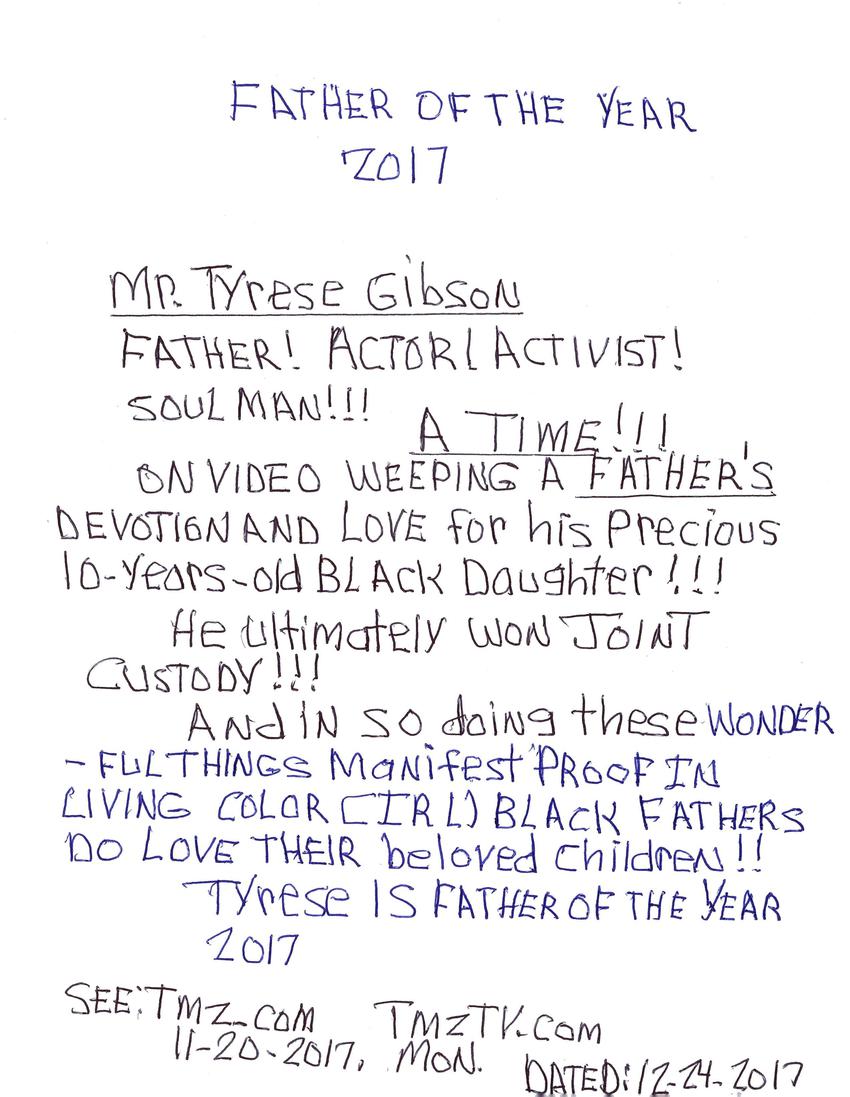 FATHER OF THE YEAR
2017
Mr. Tyrese Gibson
FATHER! ACTOR! ACTIVIST!
SOUL MAN!!!
A TIME!!!
ON VIDEO WEEPING A FATHER'S
DEVOTION AND LOVE for his Precious
10-Years-old BLACK Daughter!!!
He ultimately WON JOINT
CUSTODY!!!
And IN so doing these WONDER
-FUL THINGS Manifest PROOF IN
LIVING COLOR (IRL) BLACK FATHERS
DO LOVE THEIR beloved children!!
Tyrese IS FATHER OF THE YEAR
2017
SEE: TMZ.COM TMZTV.COM
11-20-2017, MON.
DATED: 12-24-2017